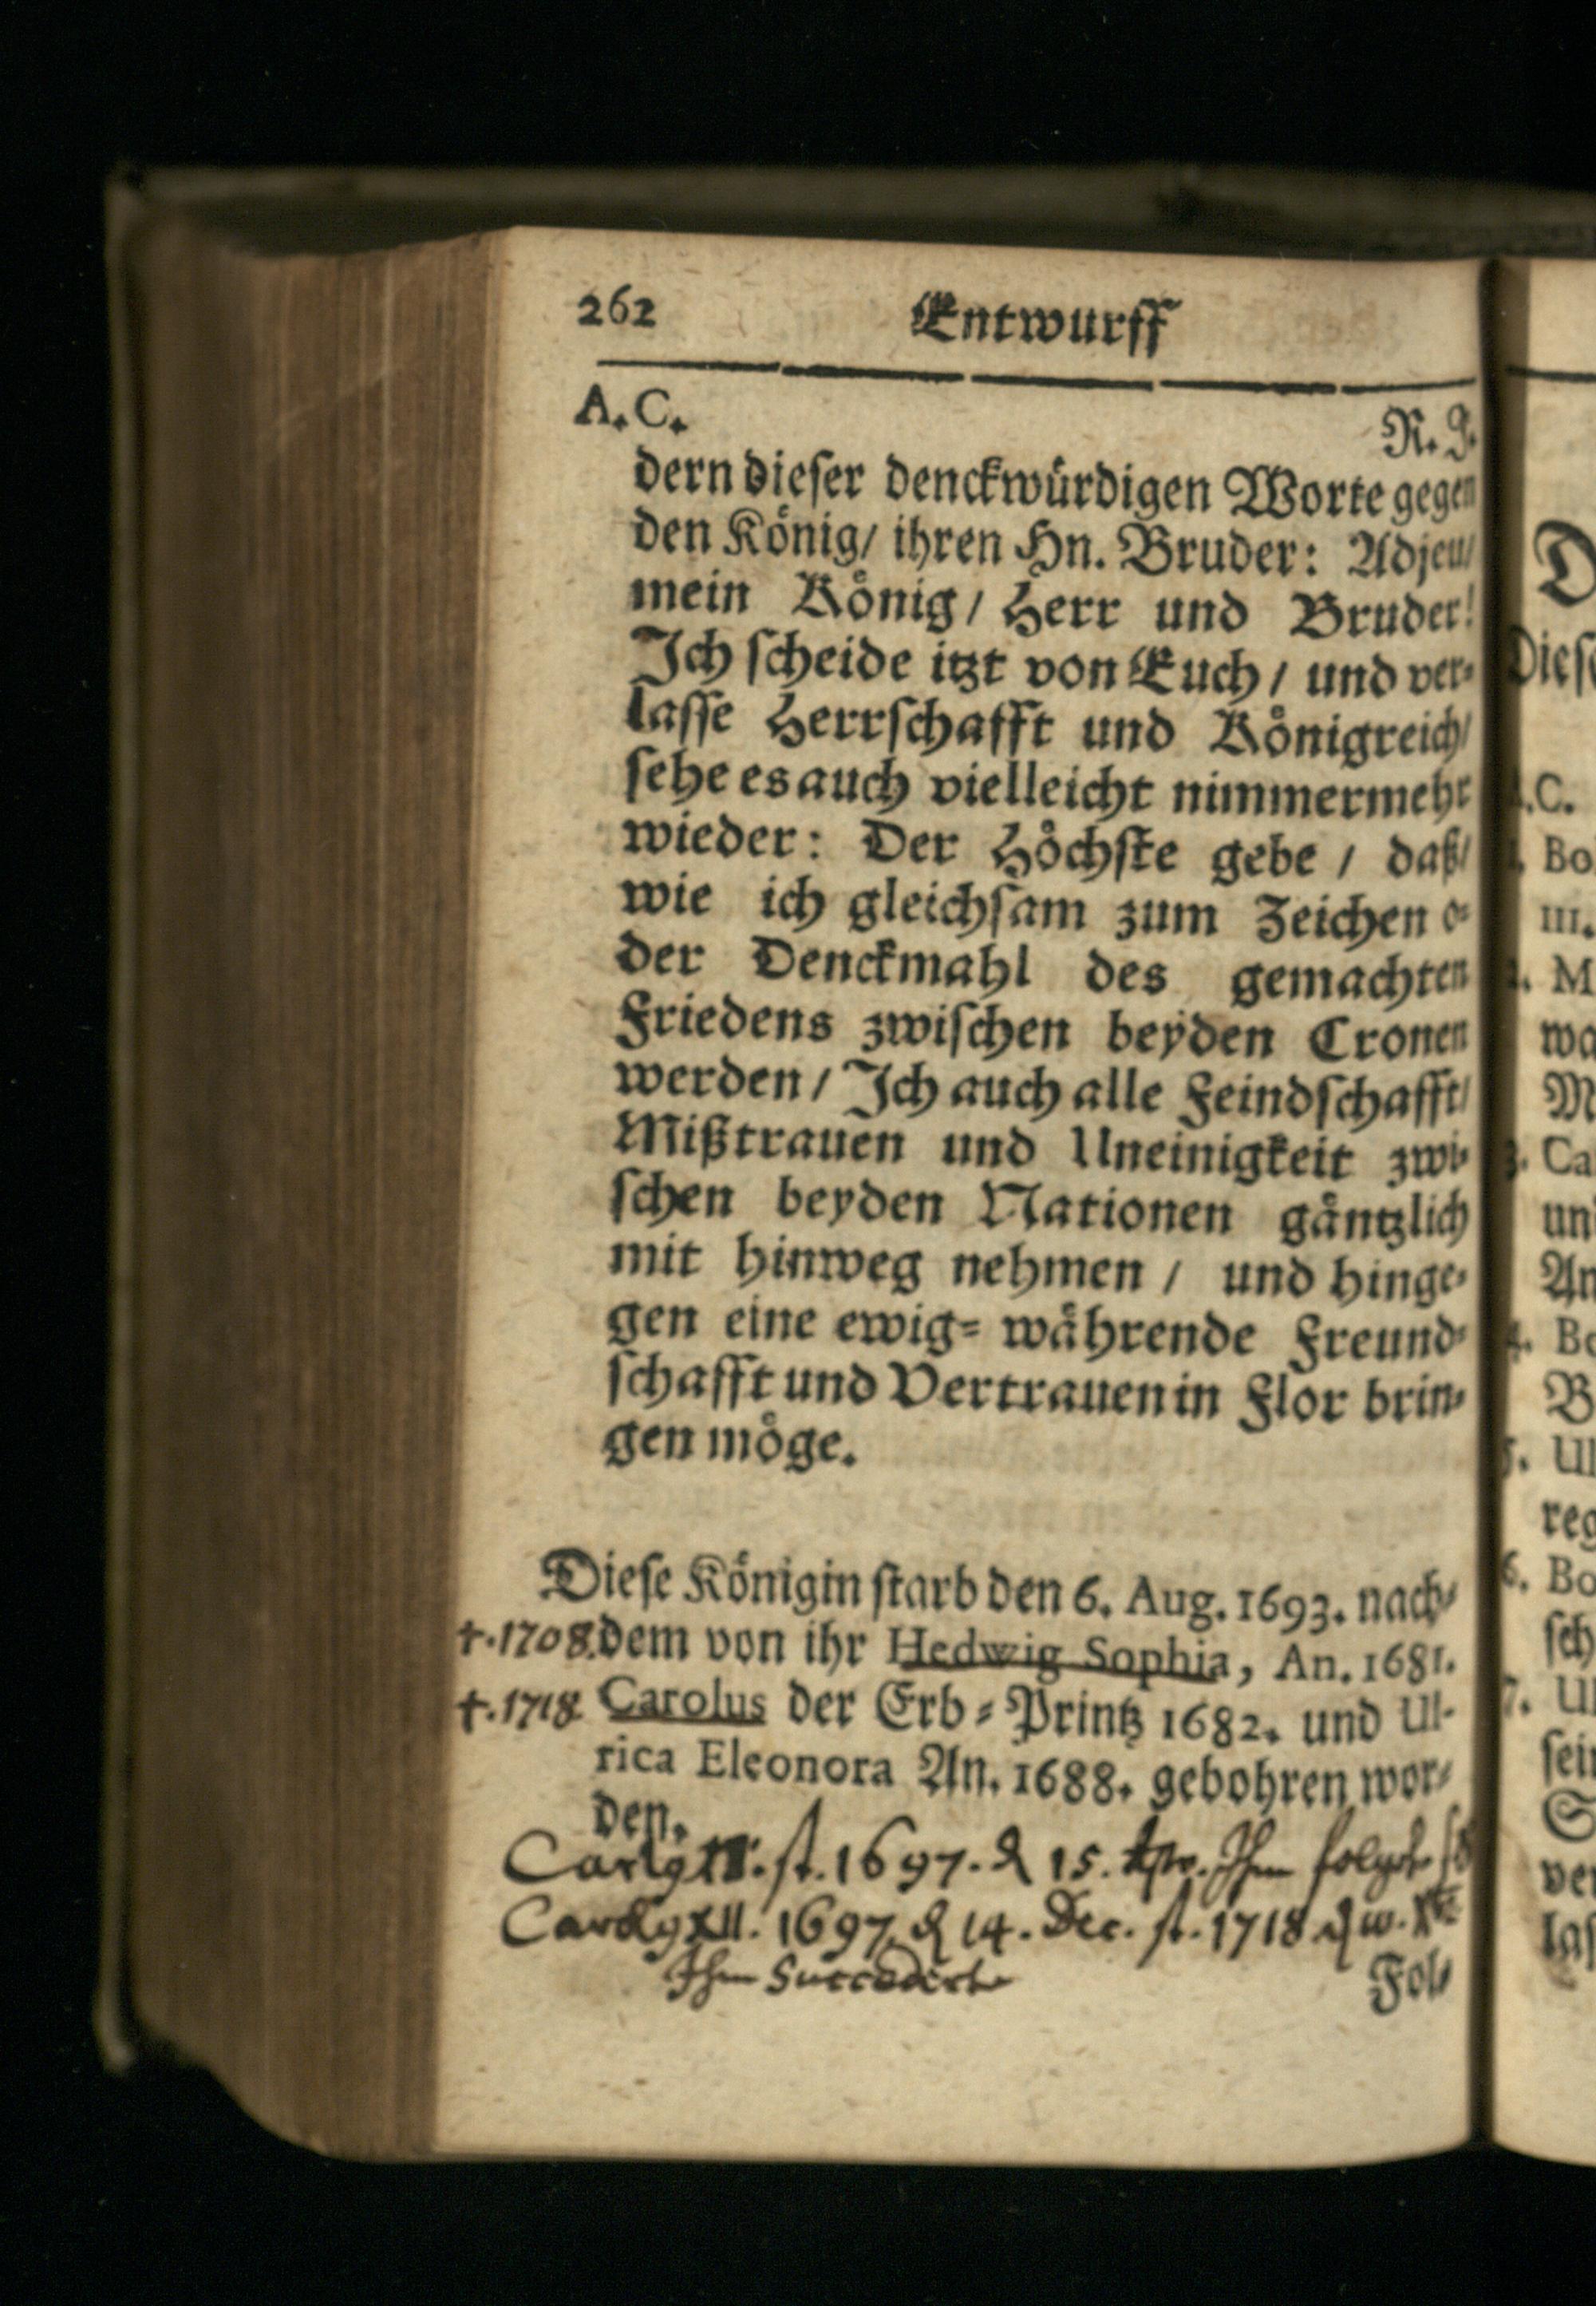 262 Entwurff
A. C. R. J.
dern dieser denckwürdigen Worte gegen
den König/ ihren Hn. Bruder: Adjeu/
mein König/ Herr und Bruder!
Ich scheide itzt von Euch/ und ver-
lasse Herrschafft und Königreich/
sehe es auch vielleicht nimmermehr
wieder: Der Höchste gebe/ daß/
wie ich gleichsam zum Zeichen o-
der Denckmahl des gemachten
Friedens zwischen beyden Cronen
werden/ Ich auch alle Feindschafft/
Mißtrauen und Uneinigkeit zwi-
schen beyden Nationen gäntzlich
mit hinweg nehmen/ und hinge-
gen eine ewig-währende Freund-
schafft und Vertrauen in Flor brin-
gen möge.
Diese Königin starb den 6. Aug. 1693. nach-
†. 1708. dem von ihr Hedwig Sophia, An. 1681.
†. 1718 Carolus der Erb-Printz 1682. und Ul-
rica Eleonora An. 1688. gebohren wor-
den.
st. 1697. d 15. Ihm folgete
XII. 1697. d 14. Dec. st. 1718
Ihm Succedirte
Fol-
D
Diese
A.C.
1. Bo
III.
2. M
wa
M
3. Ca
un
An
4. Bo
B
5. Ul
reg
6. Bo
sch
7. Ul
sein
S
ver
las